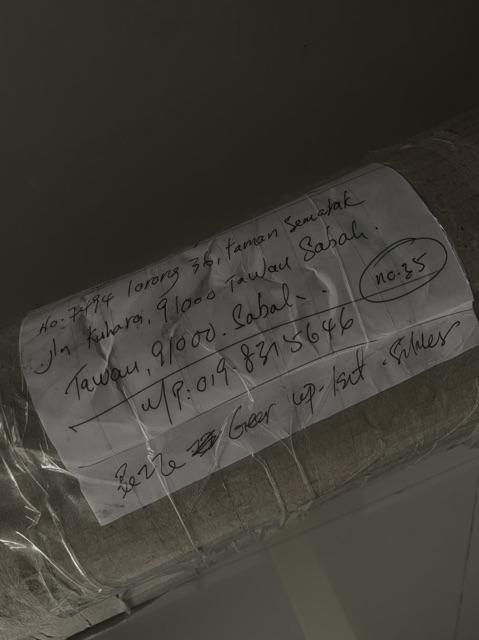 No: 7494 lorong 36, taman Semarak
Jln Kuharai, 91000 Tawau Sabah.
Tawau, 91000. Sabah.
no:35
H/P: 019-8315646
Gear up-kit. Silver